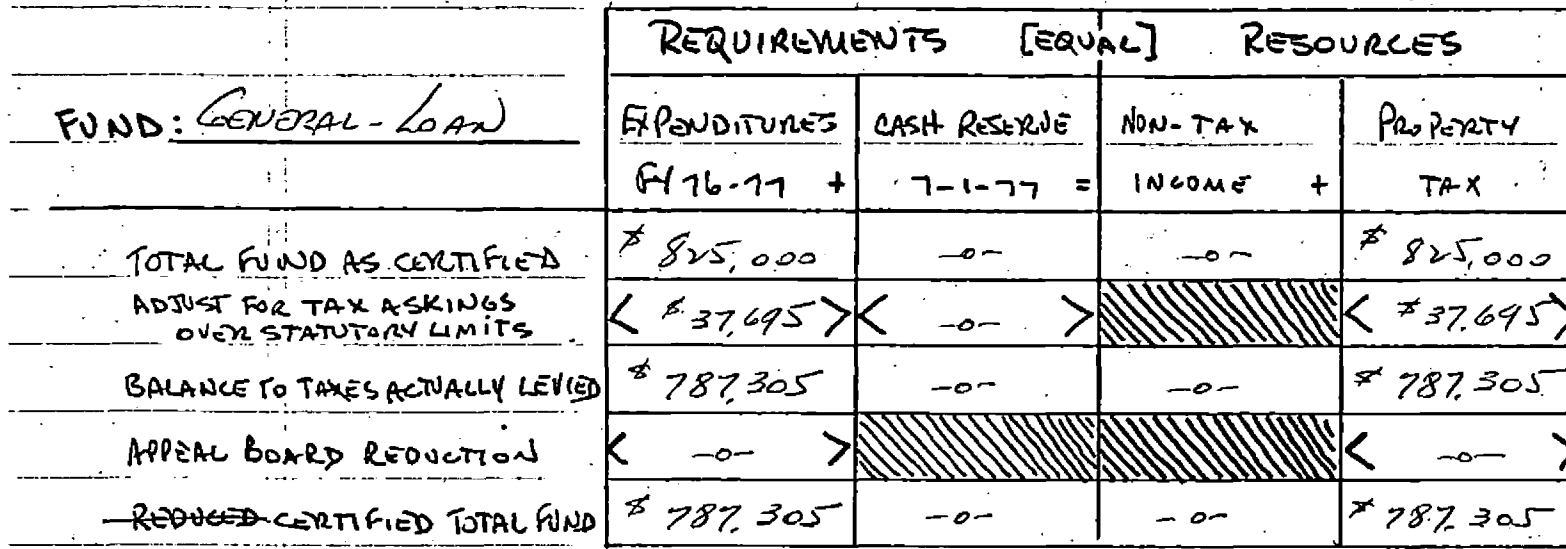 REQUIREMENTS [EQUAL] RESOURCES
FUND: GENERAL-LOAN EXPENDITURES CASH RESERVE NON-TAX PROPERTY
FY 76-77 + 7-1-77 = INCOME + TAX
TOTAL FUND AS CERTIFIED $ 825,000 -0- -0- $ 825,000
ADJUST FOR TAX ASKINGS
OVER STATUTORY LIMITS < $ 37,695 > < -0- > < $ 37,695 >
BALANCE TO TAXES ACTUALLY LEVIED $ 787,305 -0- -0- $ 787,305
APPEAL BOARD REDUCTION < -0- > < -0- >
REDUCED CERTIFIED TOTAL FUND $ 787,305 -0- -0- $ 787,305